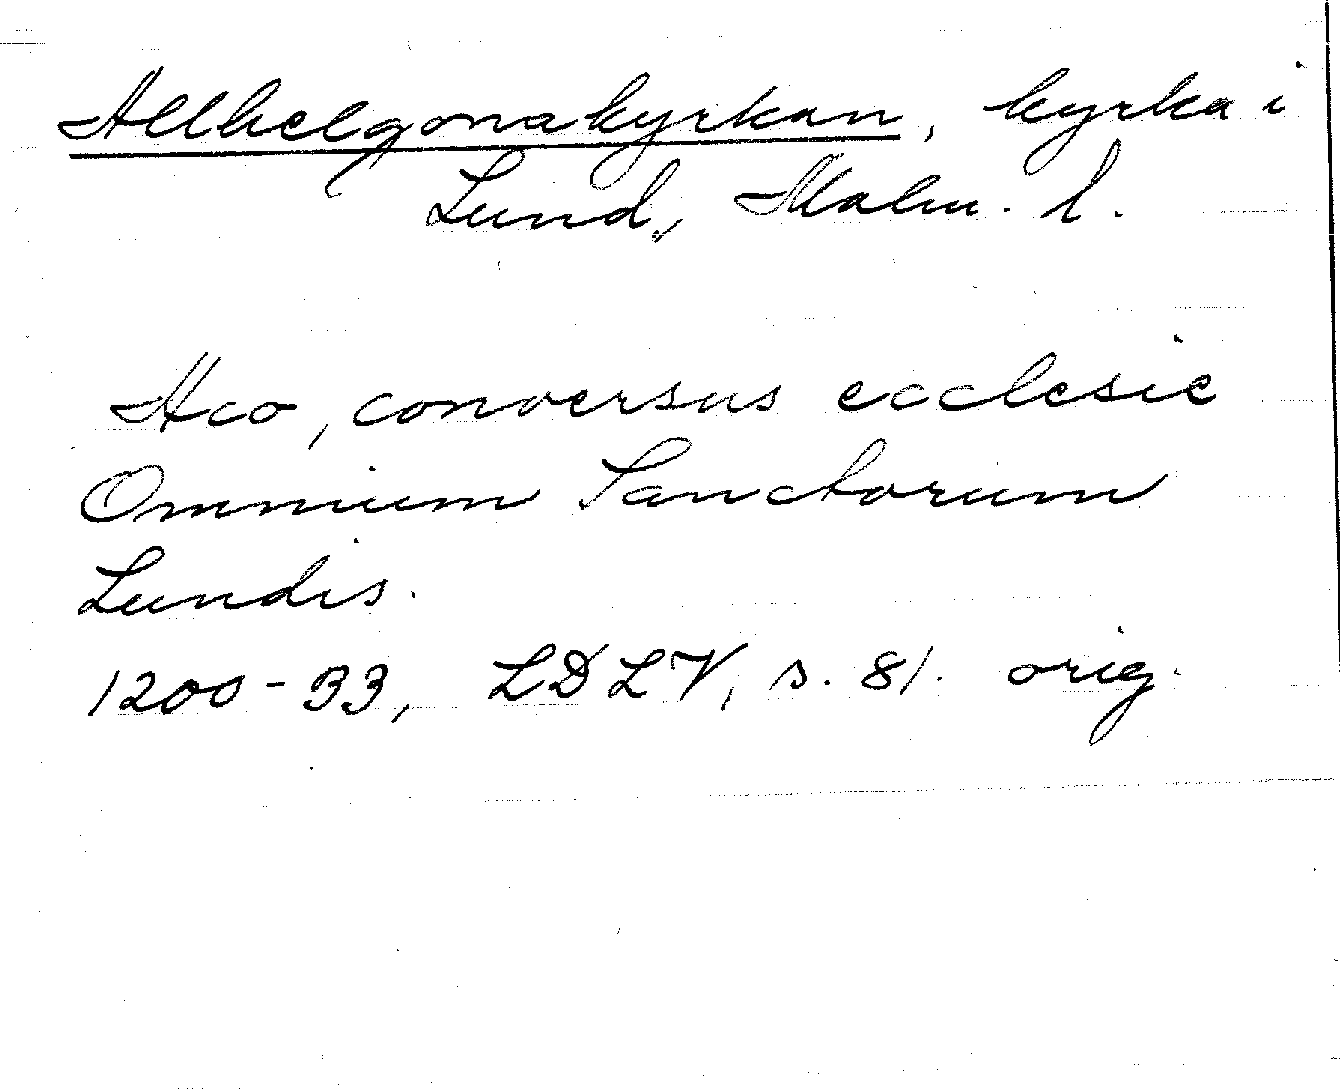 Allhelgonakyrkan, kyrka i
Lund, Malm. l.
Aco, conversus ecclesie
Omnium Sanctorum
Lundis.
1200-33, LDLV, s. 81. orig.